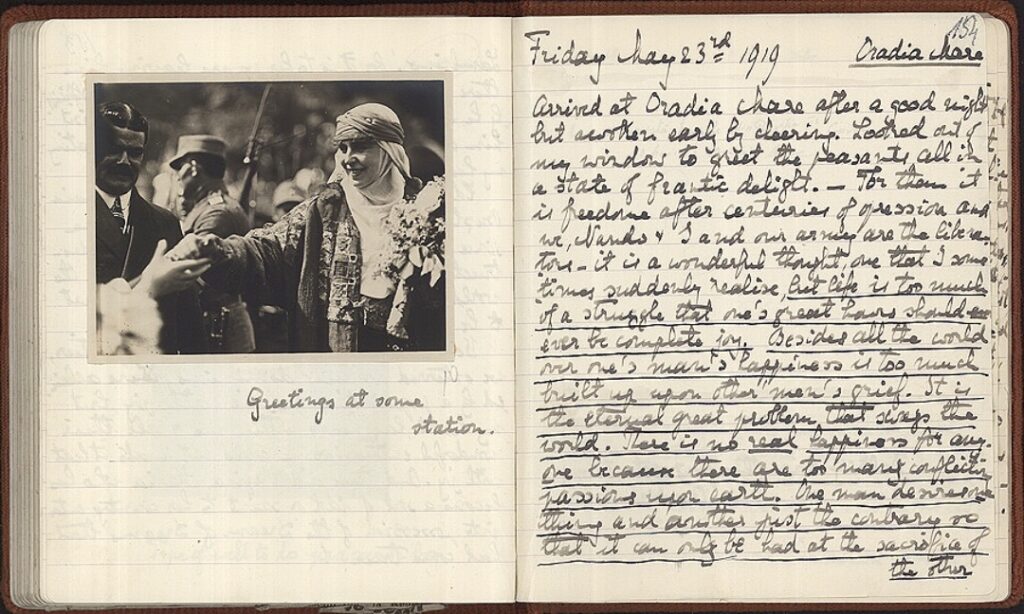 Greetings at some
station.
154
Friday May 23rd 1919 Oradia Mare
Arrived at Oradia Mare after a good night
but awoken early by cheering. Looked out of
my window to greet the peasants all in
a state of frantic delight. — For them it
is freedome after centeries of opression and
we, Nando & I and our army are the libera-
tors - it is a wonderful thought, one that I some
times suddenly realise, but life is too much
of a struggle that one's great hours should
ever be complete joy. Besides all the world
over one's man's happiness is too much
built up upon other men's grief. It is
the eternal great problem that sways the
world. There is no real happiness for any-
one because there are too many conflicting
passions upon earth. One man desires one
thing and another just the contrary so
that it can only be had at the sacrifice of
the other